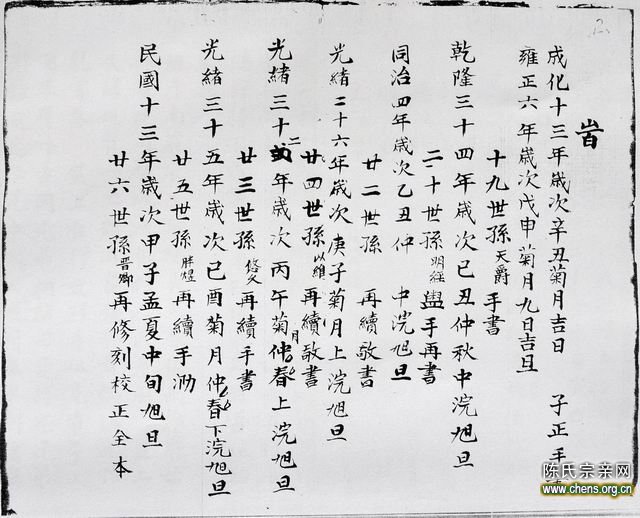 旹
成化十三年歲次辛丑菊月吉日 子正手
雍正六年歲次戊申菊月九日吉旦
十九世孫天爵手書
乾隆三十四年歲次己丑仲秋中浣旭旦
二十世孫明經盥手再書
同治四年歲次乙丑仲 中浣旭旦
廿二世孫 再續敬書
光緒二十六年歲次庚子菊月上浣旭旦
廿四世孫以維再續敬書
光緒三十二年歲次丙午菊月仲春上浣旭旦
廿三世孫悠久再續手書
光緒三十五年歲次己酉菊月仲春下浣旭旦
廿五世孫胜煜再續手泐
民國十三年歲次甲子孟夏中旬旭旦
廿六世孫晋卿再修刻校正全本
陈氏宗亲网
www.chens.org.cn